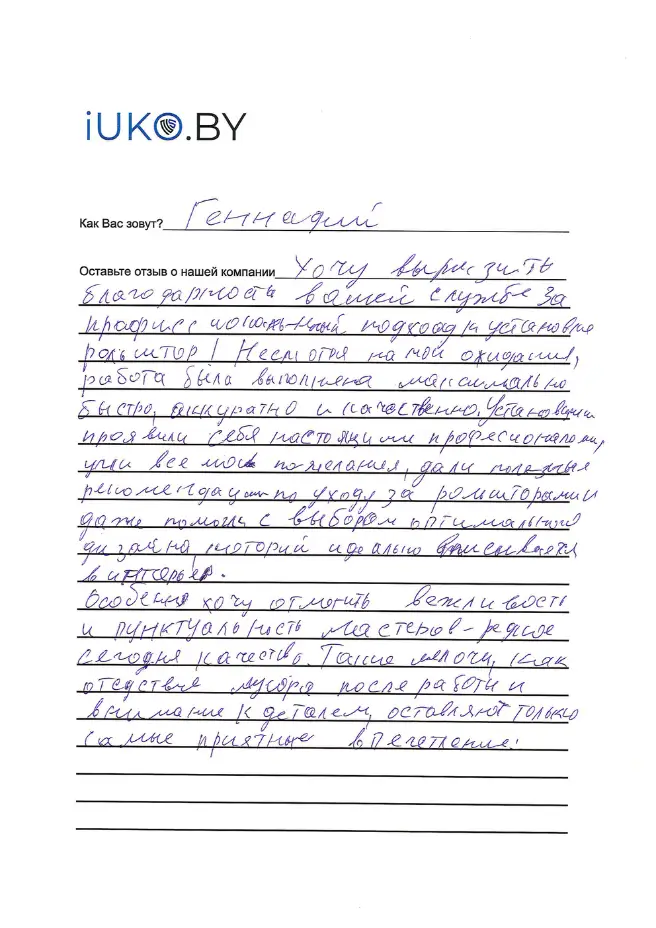 iUKO.BY
Как Вас зовут? Геннадий
Оставьте отзыв о нашей компании Хочу выразить
благодарность вашей службе за
профессиональный подход к установке
рольштор! Несмотря на мои ожидания,
работа была выполнена максимально
быстро, аккуратно и качественно. Установщики
проявили себя настоящими професионалами,
учли все мои пожелания, дали полезные
рекомендации по уходу за ролшторами и
даже помогли с выбором оптимального
дизайна, который идеально вписывается
в интерьер.
Особенно хочу отметить вежливость
и пунктуальность мастеров - редкое
сегодня качество. Такие мелочи, как
отсдствие мусора после работы и
внимание к деталем, оставляют только
самые приятные впечетление!